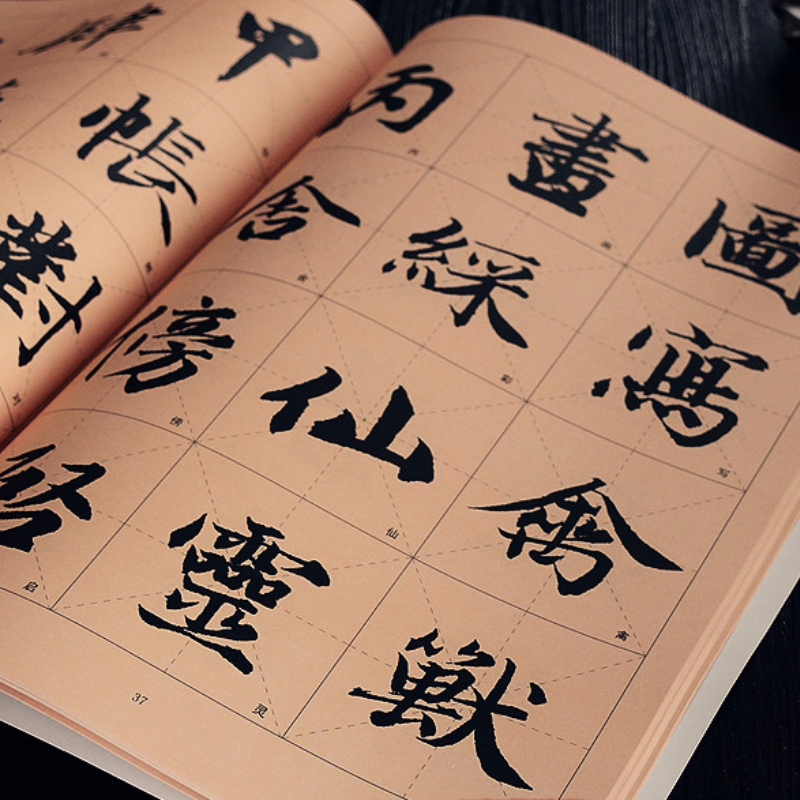 圖寫禽獸
写
禽
畫綵仙靈
画
彩
仙
灵
丙舍傍啓
丙
舍
傍
启
甲帳對
对
37